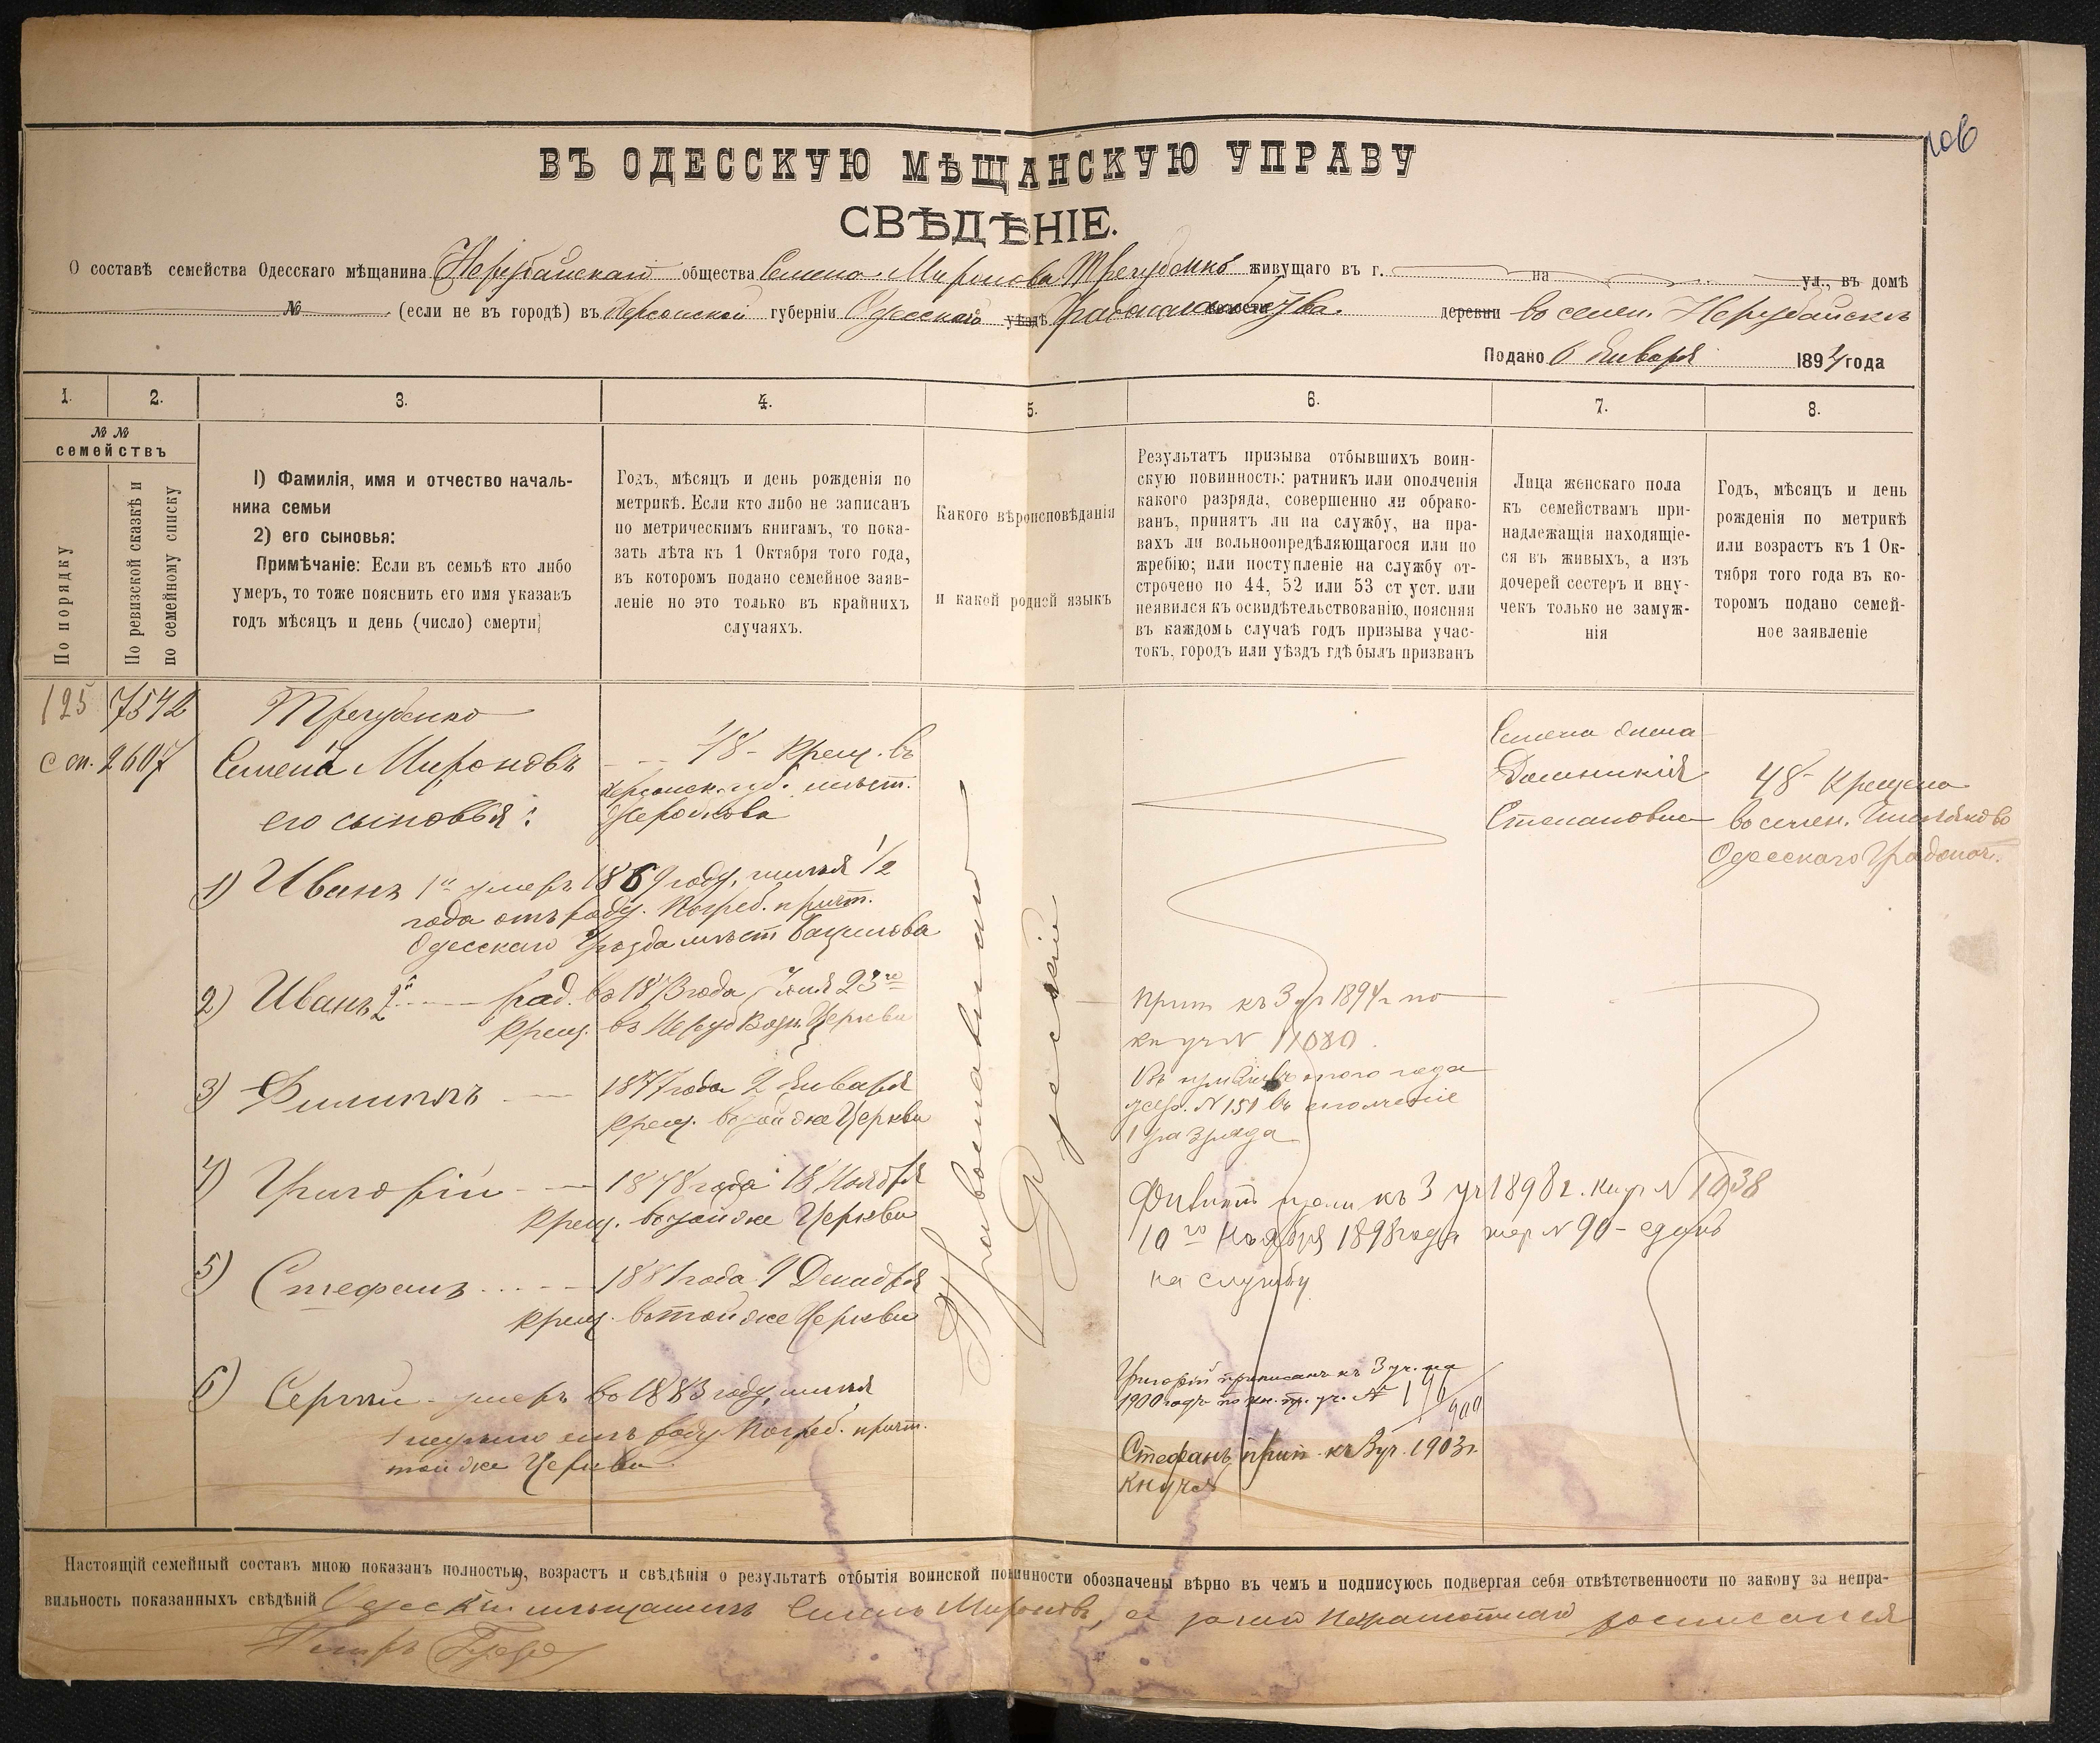 ВЪ ОДЕССКУЮ МѢЩАНСКУЮ УПРАВУ
СВѢДѢНІЕ.
О составѣ семейства Одесскаго мѣщанина Нерубайскаго общества Семена Миронова Трегубенко живущаго въ г. на ул., въ домѣ
№ (если не въ городѣ) въ Херсонской губерніи Одесскаго уѣздѣ Градоначальства волости деревни во селен. Нерубайскъ
Подано 6 Января 1894 года
1. 2. 3. 4. 5. 6. 7. 8.
№ №
семействъ
По порядку
По ревизской сказкѣ и
по семейному списку
1) Фамилія, имя и отчество началь-
ника семьи
2) его сыновья:
Примѣчаніе: Если въ семьѣ кто либо
умеръ, то тоже пояснить его имя указавъ
годъ мѣсяцъ и день (число) смерти
Годъ, мѣсяцъ и день рожденія по
метрикѣ. Если кто либо не записанъ
по метрическимъ книгамъ, то пока-
зать лѣта къ 1 Октября того года,
въ которомъ подано семейное заяв-
леніе но это только въ крайнихъ
случаяхъ.
Какого вѣроисповѣданія
и какой родной языкъ
Результатъ призыва отбывшихъ воин-
скую повинность: ратникъ или ополченія
какого разряда, совершенно ли обрако-
ванъ, принятъ ли на службу, на пра-
вахъ ли вольноопредѣляющагося или по
жребію; или поступленіе на службу от-
строчено по 44, 52 или 53 ст уст. или
неявился къ освидѣтельствованію, поясняя
въ каждомъ случаѣ годъ призыва учас-
токъ, городъ или уѣздъ гдѣ былъ призванъ
Лица женскаго пола
къ семействамъ при-
надлежащія находящіе-
ся въ живыхъ, а изъ
дочерей сестеръ и вну-
чекъ только не замуж-
нія
Годъ, мѣсяцъ и день
рожденія по метрикѣ
или возрастъ къ 1 Ок-
тября того года въ ко-
торомъ подано семей-
ное заявленіе
125 7542
с сп. 2607
Трегубенко
Семенъ Мироновъ
его сыновья:
48 - Крещ. въ
Херсонск. губ. мѣст.
Семена жена
Домникія
Степановна
48 - Крещена
во селен.
Одесскаго Градонач.
1) Иванъ 1й умеръ 1869 году, имѣя 1/2
года отъ роду. Погреб. причт.
Одесскаго Уѣзда мѣст
2) Иванъ 2й род. въ 1873 года Іюля 23го
Крещ. въ Неруб Возн. Церкви
3) Филиппъ 1877 года 2 Января
Крещ. въ той же Церкви
4) Григорій 1878 года 18 Ноября
Крещ. въ той же Церкви
5) Стефанъ 1881 года 9 Декабря
Крещ. въ той же Церкви
6) Сергѣй умеръ въ 1883 году, имѣя
1 недѣлю отъ роду Погреб. причт.
той же Церкви
Православнаго
Русскій
Прип къ 3 уч 1894 г по
кн уч N 11080
Въ призывъ этого года
жер. N 151 въ ополченіе
1 разряда
Филиппъ прип къ 3 уч 1898 г. кн уч N 1038
10го Ноября 1898 года жер N 90 - сданъ
на службу
Григорій приписанъ къ 3 уч. на
1900 годъ по кн. пр. уч. N 196/900
Стефанъ прип. къ 3 уч. 1903 г.
кн уч N
Настоящій семейный составъ мною показанъ полностью, возрастъ и свѣдѣнія о результатѣ отбытія воинской повинности обозначены вѣрно въ чемъ и подписуюсь подвергая себя отвѣтственности по закону за непра-
вильность показанныхъ свѣдѣній Одесскій мѣщанинъ Семенъ Мироновъ, а за него неграмотнаго росписался
Петръ